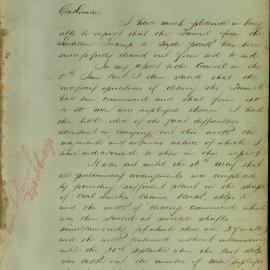 Gentlemen,
I have much pleasure in being
able to report that the Tunnel from the
Lachlan Swamp to Hyde Park has been
successfully cleaned out from end to end.
In my report to the Council on the
5th June last I then stated that the
necessary operations of clearing the Tunnel
had been commenced and that from
to 50 men were employed therein. I had
then little idea of the great difficulties
attendant in carrying out this work the
magnitude and arduous nature of which I
have endeavoured to show in this report.
It was not until the May that
all preliminary arrangements were completed
by providing sufficient plant in the shape
of
and the work of cleaning commenced which
was then started at several shafts
simultaneously (of which there are in all)
and the work continued without intermission
until the September when the last
was
out the number of men employed